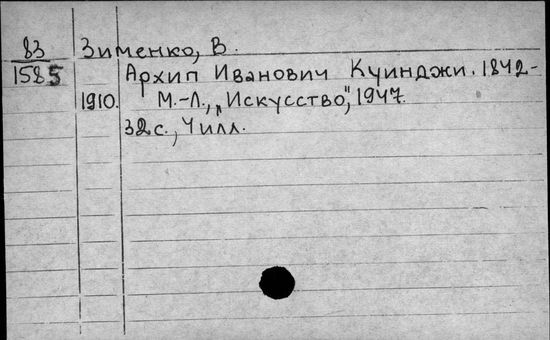 83 Зименко, В.
1585 Архип Иванович Куинджи. 1842-
1910. М.-Л., „Искусство", 1947.
32 с., 4 илл.